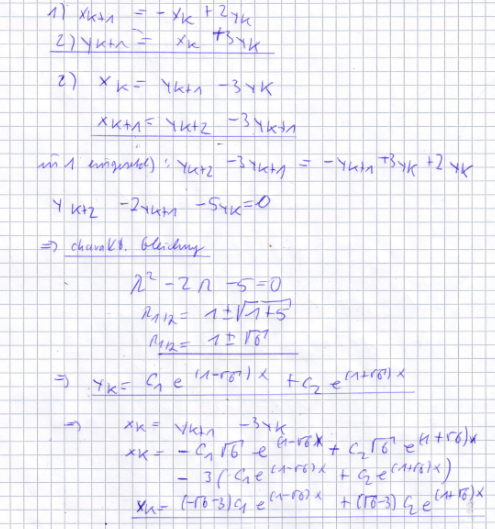 1) xₖ₊₁ = -xₖ + 2yₖ
2) yₖ₊₁ = xₖ + 3yₖ
2) xₖ = yₖ₊₁ - 3yₖ
xₖ₊₁ = yₖ₊₂ - 3yₖ₊₁
in 1 eingesetzt: yₖ₊₂ - 3yₖ₊₁ = -yₖ₊₁ + 3yₖ + 2yₖ
yₖ₊₂ - 2yₖ₊₁ - 5yₖ = 0
⇒ charakt. Gleichung
λ² - 2λ - 5 = 0
λ₁,₂ = 1 ± √(1+5)
λ₁,₂ = 1 ± √6
⇒ yₖ = C₁ e^((1-√6)x) + C₂ e^((1+√6)x)
⇒ xₖ = yₖ₊₁ - 3yₖ
xₖ = -C₁√6 e^((1-√6)x) + C₂√6 e^((1+√6)x)
- 3(C₁e^((1-√6)x) + C₂e^((1+√6)x))
xₖ = (-√6-3)C₁ e^((1-√6)x) + (√6-3) C₂ e^((1+√6)x)